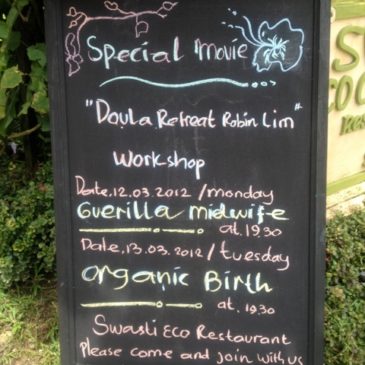 Special movie
"Doula Retreat Robin Lim"
Workshop
Date.12.03.2012/monday
Guerilla midwife
at.19.30
Date.13.03.2012/tuesday
organic Birth
at.19.30
Swasti Eco Restaurant
Please come and join with us